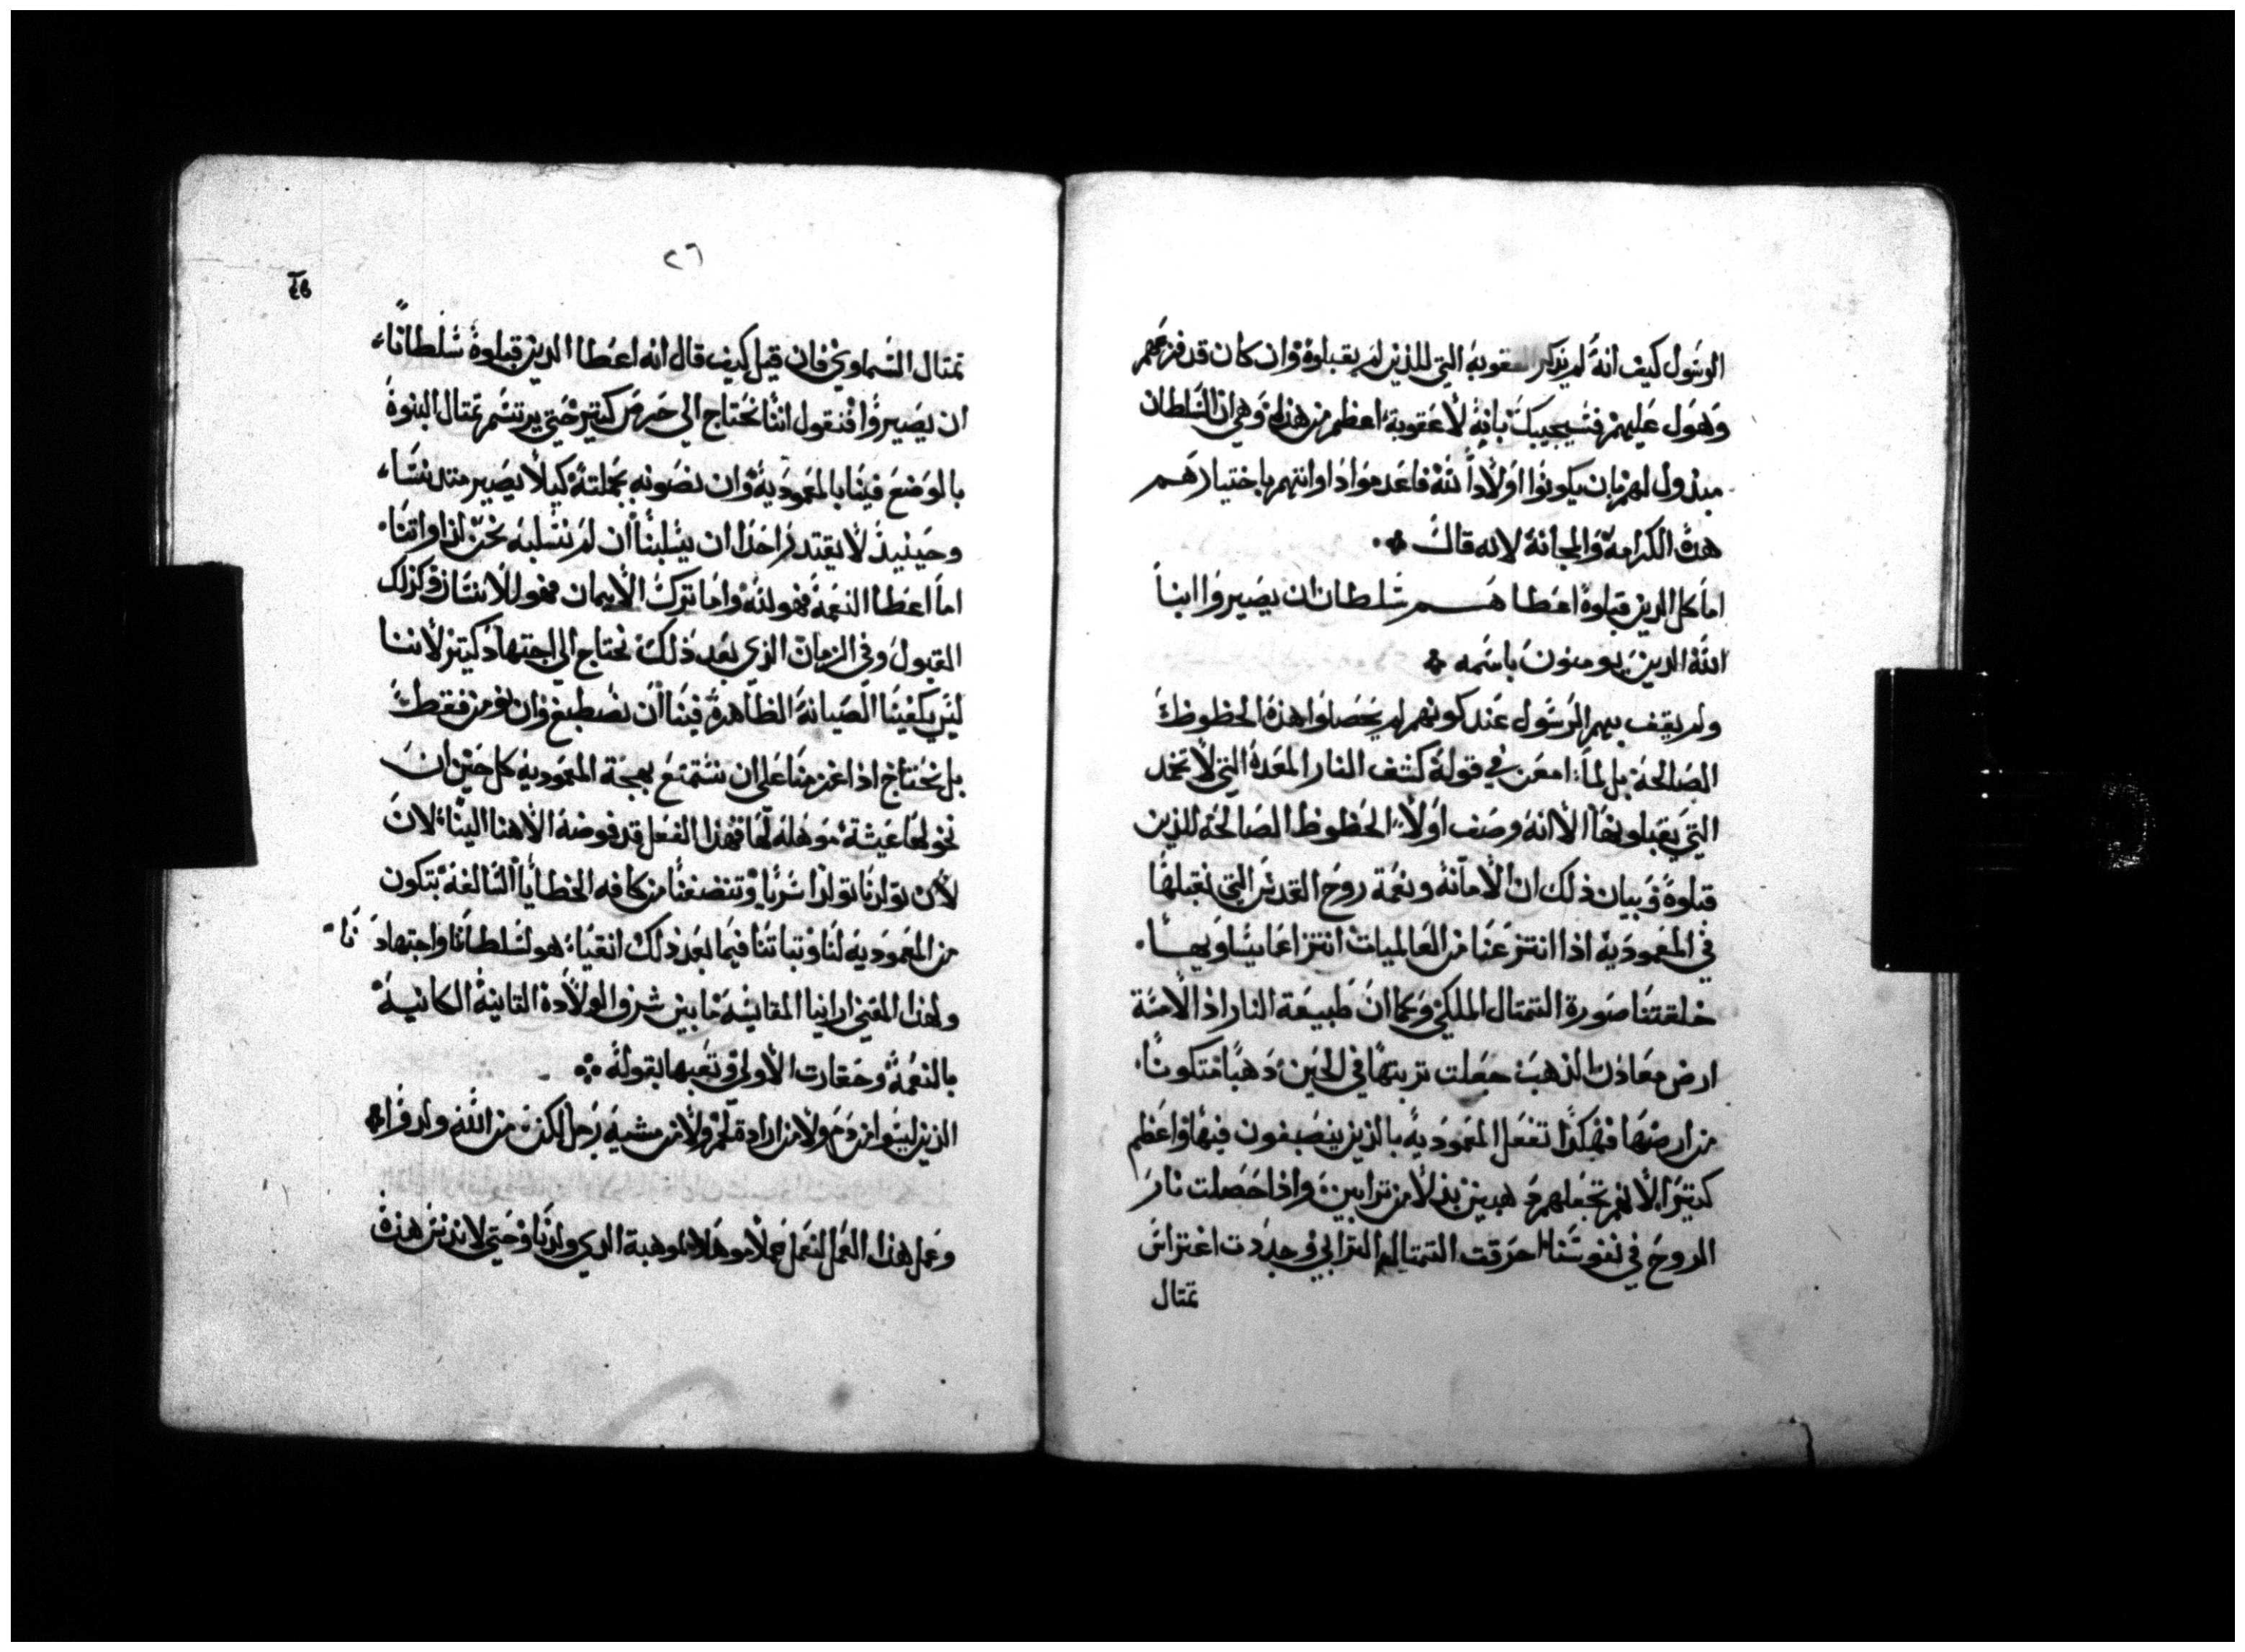 الرسول كيف انه لم يذكر العقوبة التي للذين لم يقبلوه وان كان قد فزعهم
وهول عليهم فسيجيبك بانه لا عقوبة اعظم من هذه وهي ان السلطان
مبذول لهم بان يكونوا اولاداً لله فاعدموا ذاواتهم باختيارهم
هذه الكرامة والمجانة لانه قال
اما كل الدين قبلوه اعطاهم سلطان ان يصيروا ابنا
الله الدين يومنون باسمه
ولم يقف بهم الرسول عند كونهم لم يحصلوا هذه الحظوظ
الصالحة بل لما امعن في قوله كشف النار المعدة التي لا تخمد
التي يقبلونها الا انه وصف اولاً الحظوظ الصالحة للذين
قبلوه وبيان ذلك ان الامانة ونعمة روح القدس التي نقبلها
في المعمودية اذا انتزعنا من العالميات انتزاعا يساويها
خلقتنا صورة التمتال الملكي وكما ان طبيعة النار اذا لامسة
ارض معادن الذهب جعلت تربتها في الحين دهباً متكوناً
من ارضها فهكذا تفعل المعمودية بالذين ينصبغون فيها واعظم
كتيرا لانهم تجعلهم دهبين بدلا من ترابين واذا حصلت نار
الروح في نفوسنا احرقت التمتال الترابي وجددت اغتراس
تمتال
٢٦
تمتال السماوي فان قيل كيف قال انه اعطا الدين قبلوه سلطاناً
ان يصيروا فنقول اننا نحتاج الي حرص كتير حتي يرتسم تمتال البنوة
بالوضع فينا بالمعمودية وان نصونه بجملته كيلا يصير متدنساً
وحينيذ لا يقتدر احدا ان يسلبنا ان لم نسلبه نحن لذاواتنا
اما اعطا النعمة فهو لله واما ترك الايمان فهو للانسان وكذلك
القبول وفي الزمان الذي بعد ذلك نحتاج الي اجتهاد كتير لاننا
ليس يكفينا الصيانة الظاهرة فينا ان نصطبغ وان نومن فقط
بل نحتاج اذا عزمنا علي ان نتمتع بهجة المعمودية كل حين ان
نخولها عيشة موهله لها فهذا الفعل قد فوضه الاهنا الينا لان
لان تولدنا تولدا سريا وتنضفنا من كافه الخطايا السالفة بتكون
من المعمودية لنا وتباتنا فيما بعد ذلك انقيا هو لسلطاننا واجتهادنا
ولهذا المعني ارانيا المقايسه ما بين شرف الولادة التانية الكاينة
بالنعمة وحقارت الاولي وتعبها بقوله
الذين ليسوا من دم ولا من ارادة لحم ولا من مشية رجل لكن من الله ولدوا
وعمل هذا العمل لنعمل عملاً موهلا لموهبة الدي ولدنا وحتي لا ندنس هذه